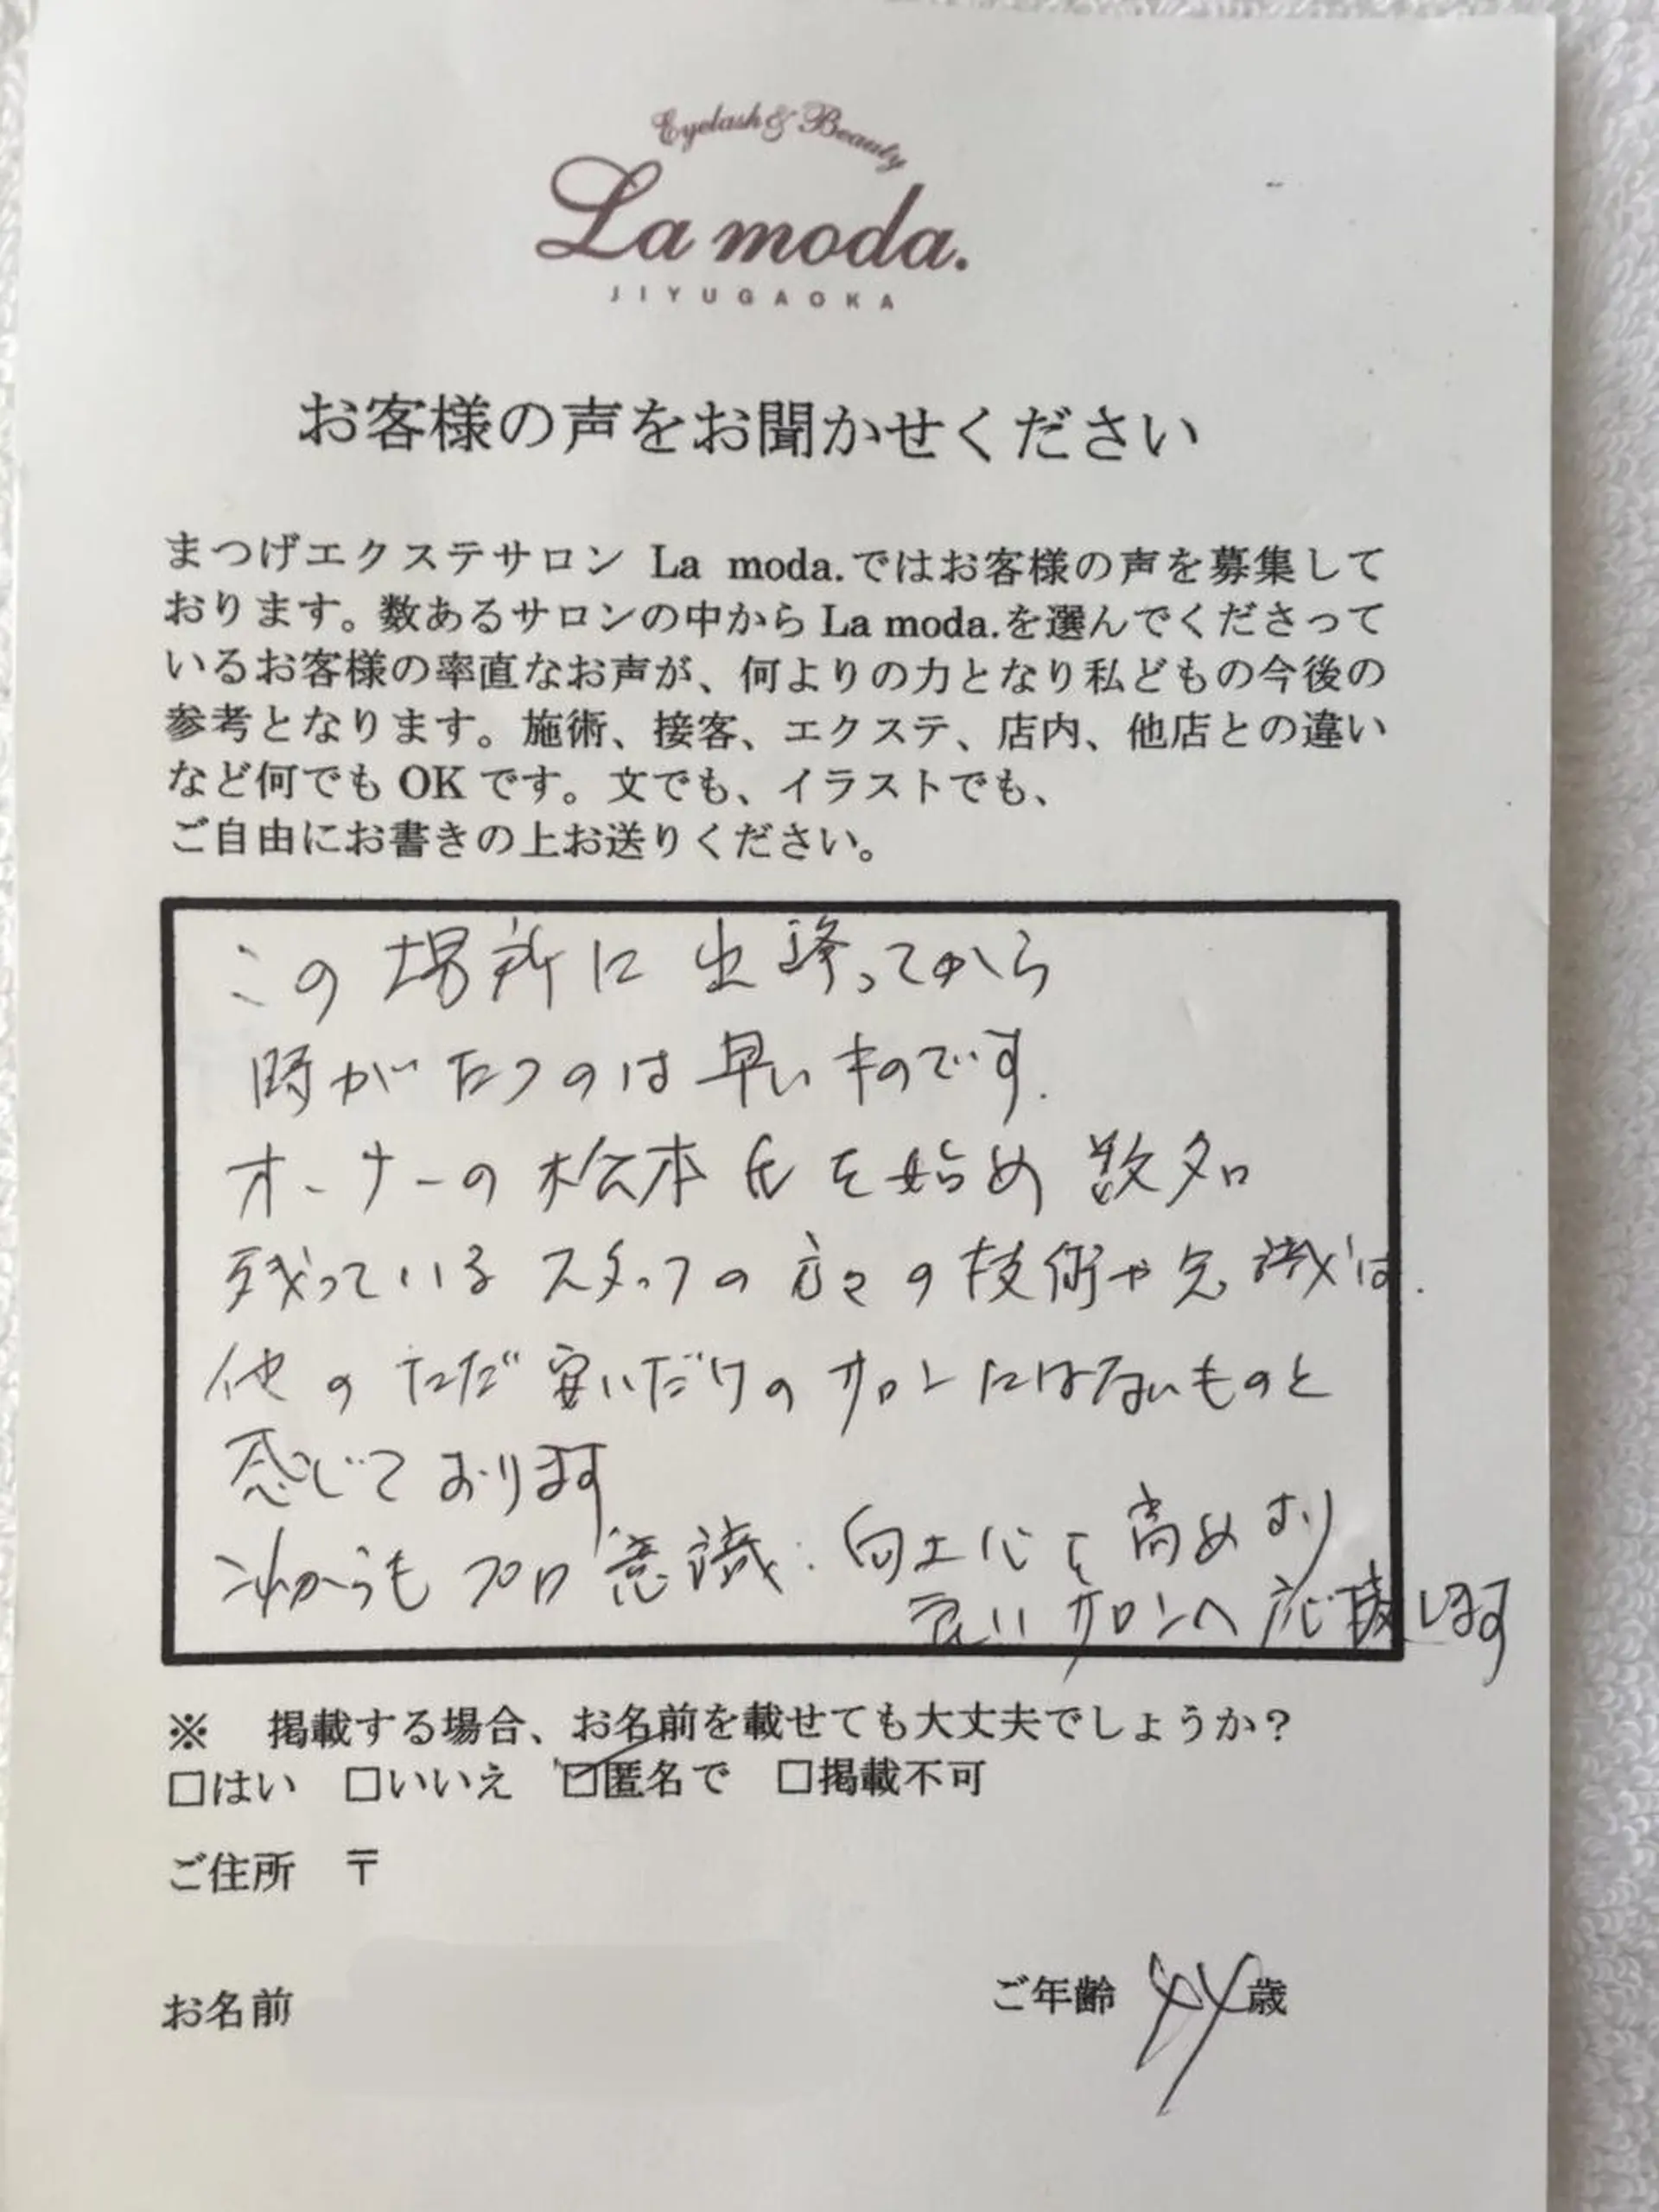 Eyelash & Beauty
La moda.
JIYUGAOKA
お客様の声をお聞かせください
まつげエクステサロン La moda.ではお客様の声を募集して
おります。数あるサロンの中から La moda.を選んでくださって
いるお客様の率直なお声が、何よりの力となり私どもの今後の
参考となります。施術、接客、エクステ、店内、他店との違い
など何でも OK です。文でも、イラストでも、
ご自由にお書きの上お送りください。
この場所に出逢ってから
時がたつのは早いものです.
オーナーの松本氏を始め 数名
残っているスタッフの方々の技術や知識は.
他のただ安いだけのサロンにはないものと
感じております
これからもプロ意識.向上心を高めより
良いサロンへ応援します
※ 掲載する場合、お名前を載せても大丈夫でしょうか?
□はい □いいえ ☑匿名で □掲載不可
ご住所 〒
お名前 ご年齢 歳